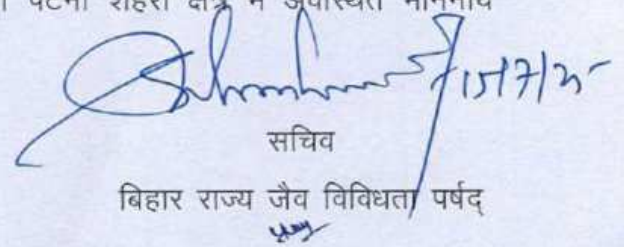 पटना शहरी क्षेत्र में अवस्थित माननीय
15/7/25
सचिव
बिहार राज्य जैव विविधता पर्षद्